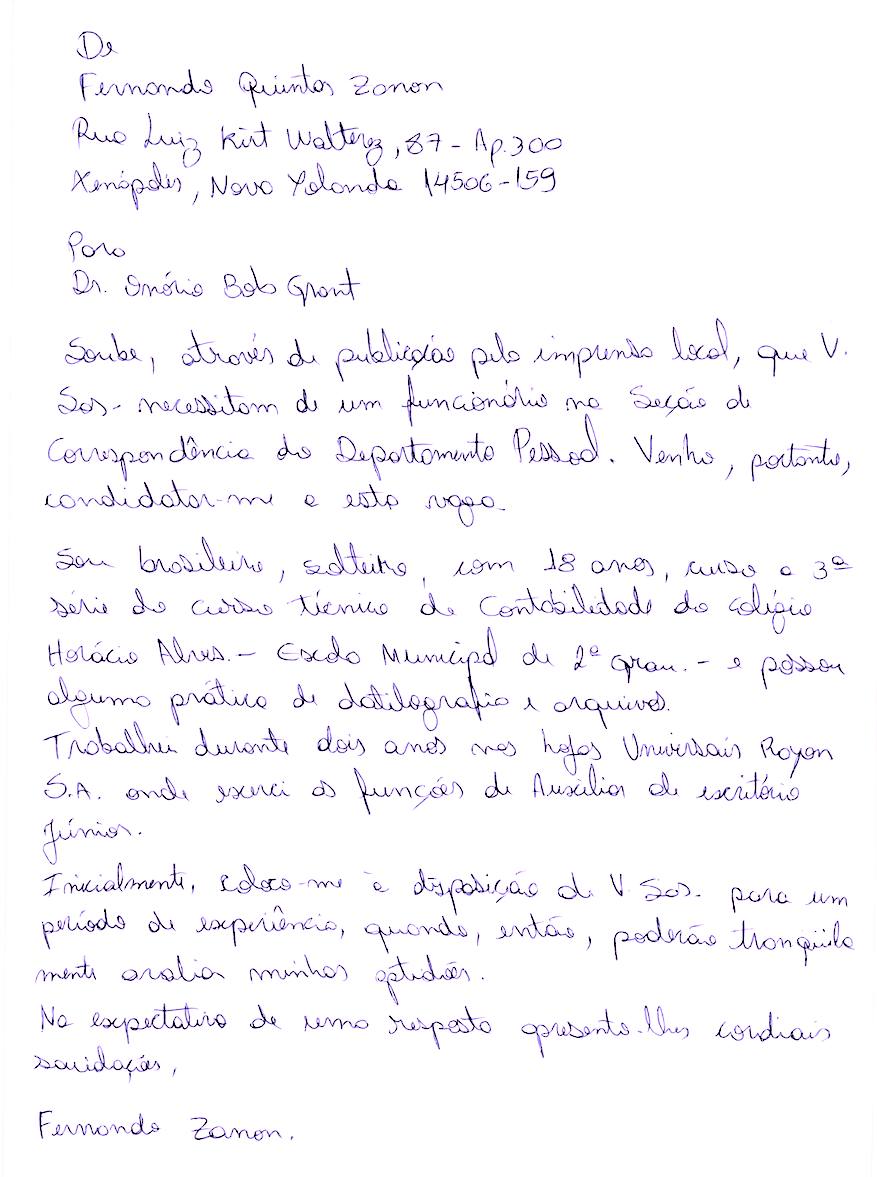 De
Fernando Quintas Zanon
Rua Luiz Kirt Walterez, 87 - Ap. 300
Xenópolis, Nova Yolanda 14506-159
Para
Dr. Onório Bob Grant
Soube, através de publicação pela imprensa local, que V.
Sas. necessitam de um funcionário na Seção de
Correspondência do Departamento Pessoal. Venho, portanto,
candidatar-me a esta vaga.
Sou brasileiro, solteiro, com 18 anos, curso a 3ª
série do curso técnico de Contabilidade do colégio
Horácio Alves. - Escola Municipal de 2º grau. - e possou
alguma prática de datilografia e arquivos.
Trabalhei durante dois anos nas lojas Universais Royan
S.A. onde exerci as funções de Auxiliar de escritório
júnior.
Inicialmente, coloco-me à disposição de V. Sas. para um
período de experiência, quando, então, poderão tranqüila
mente avaliar minhas aptidões.
Na expectativa de uma resposta apresento-lhes cordiais
saudações,
Fernando Zanon.